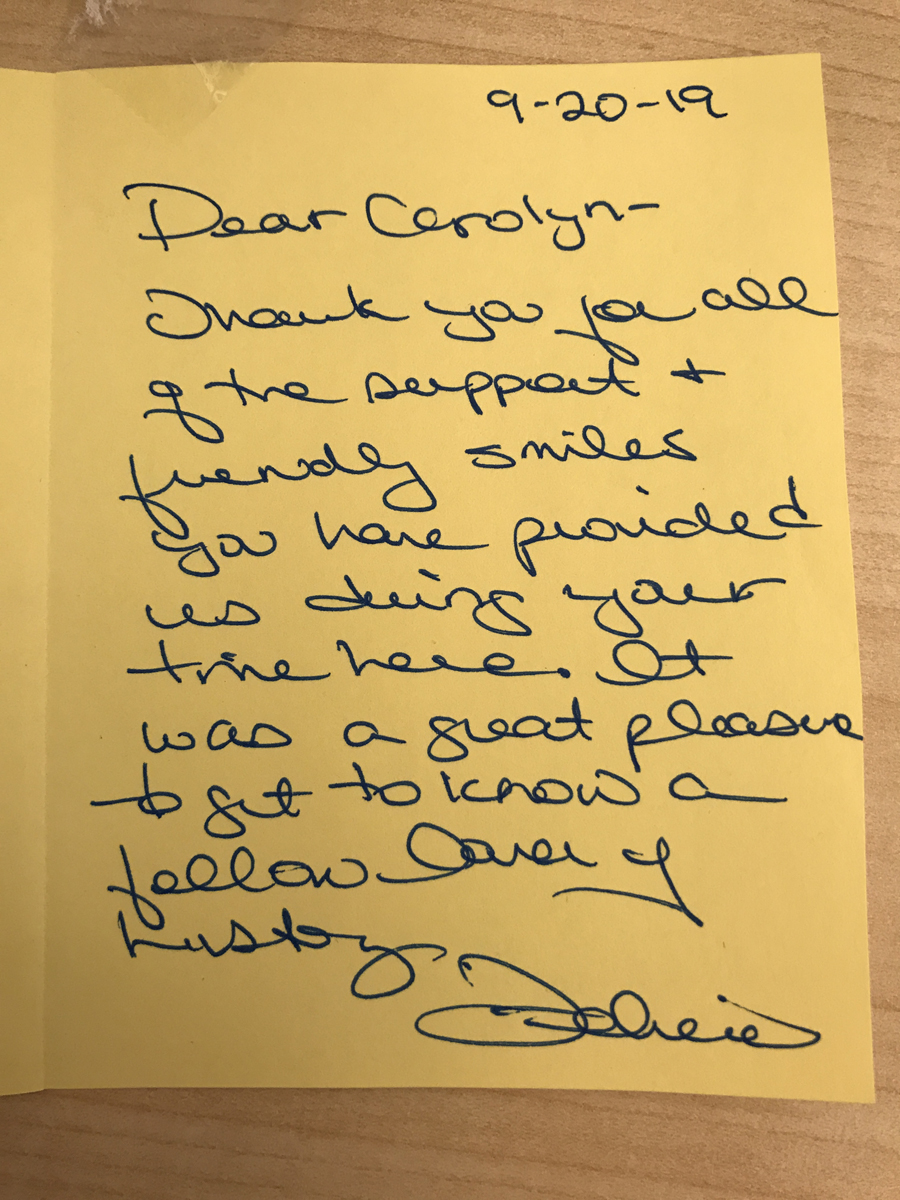 9-20-19
Dear Carolyn-
Thank you for all
of the support +
friendly smiles
you have provided
us during your
time here. It
was a great pleasure
to get to know a
fellow lover of
history